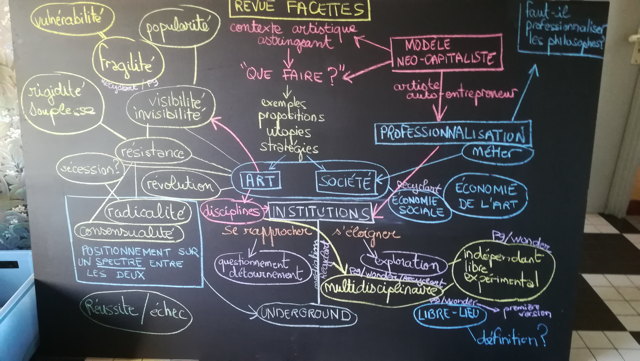 REVUE FACETTES
vulnérabilité
popularité
contexte artistique
astringeant
faut-il
professionnaliser
les philosophes?
fragilité
MODÈLE
NEO-CAPITALISTE
"QUE FAIRE?"
rigidité
souplesse
visibilité
invisibilité
exemples
propositions
utopies
stratégies
artiste
auto-entrepreneur
PROFESSIONNALISATION
métier
résistance
sécession?
révolution
ART
SOCIÉTÉ
recyclart
ÉCONOMIE
SOCIALE
ÉCONOMIE
DE L'ART
radicalité
consensualité
disciplines
INSTITUTIONS
se rapprocher
s'éloigner
POSITIONNEMENT SUR
UN SPECTRE ENTRE
LES DEUX
questionnement
détournement
exploration
PG/wonder
indépendant
libre
expérimental
PG/wonder/recyclart
multidisciplinaire
Réussite/échec
UNDERGROUND
PG/wonder
LIBRE-LIEU
première
version
définition?